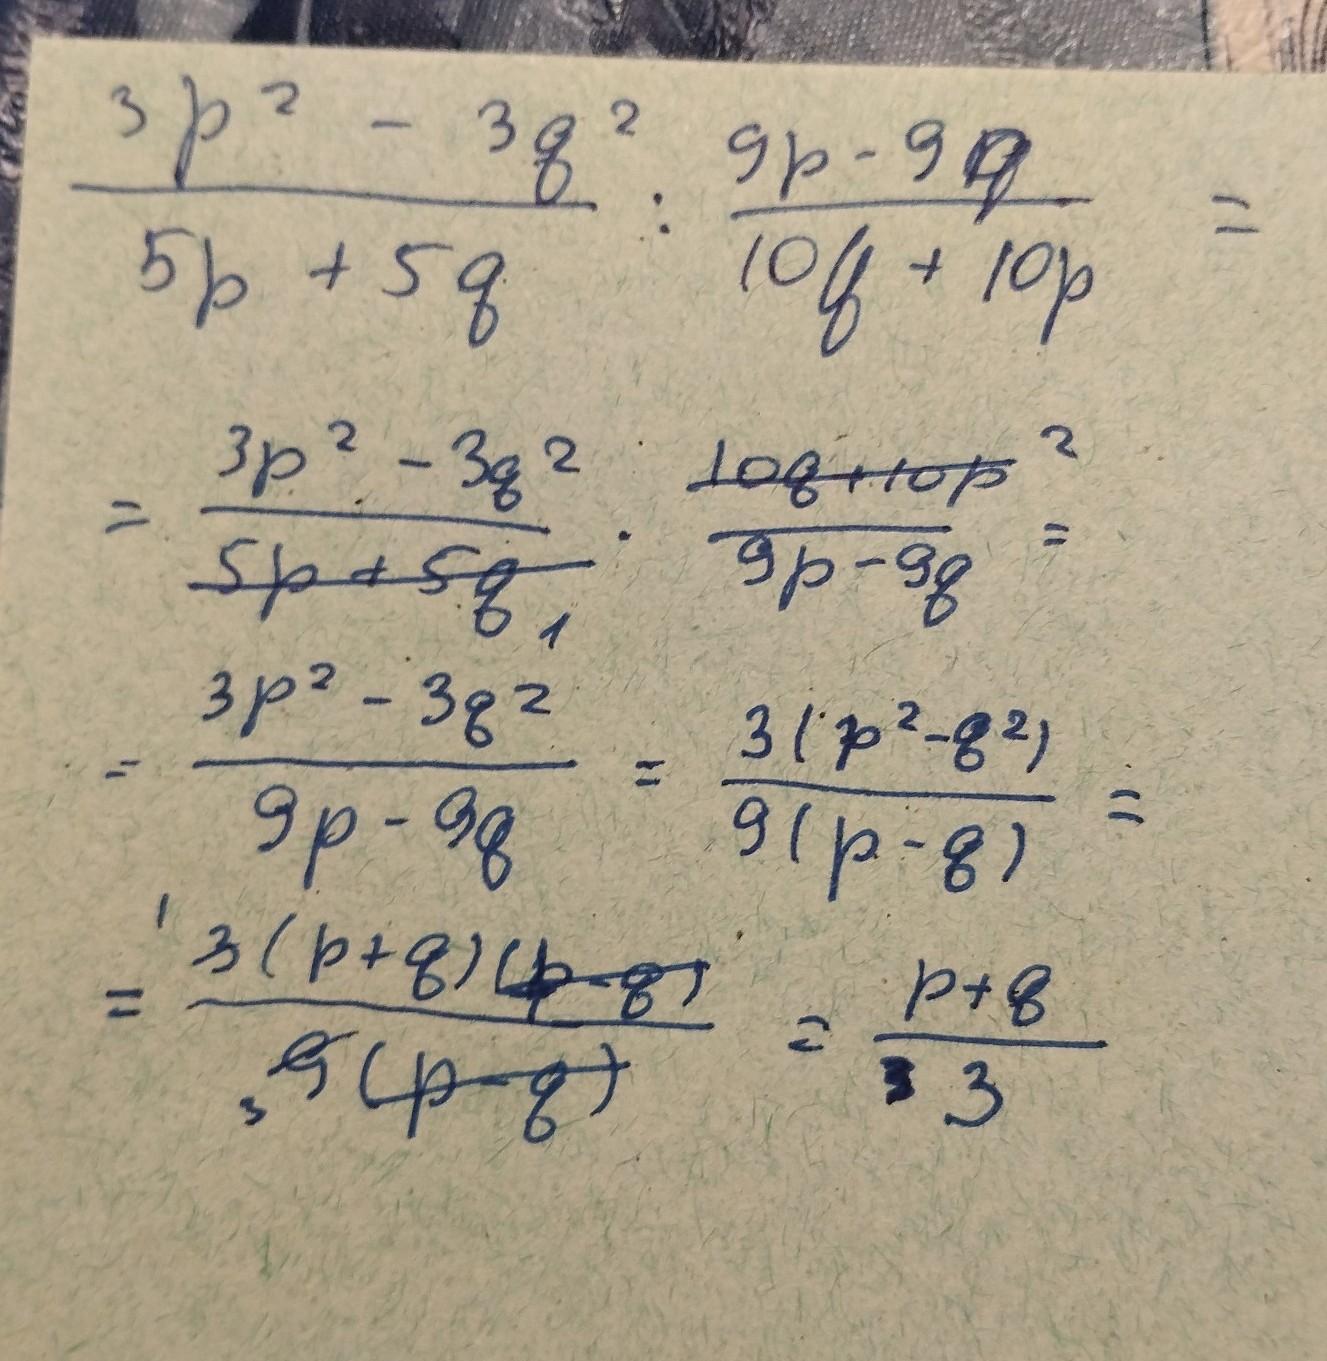 3p² - 3q² / 5p + 5q : 9p - 9q / 10q + 10p =
= 3p² - 3q² / 5p + 5q 1 · 10q + 10p 2 / 9p - 9q =
= 3p² - 3q² / 9p - 9q = 3(p² - q²) / 9(p - q) =
= 1 3(p + q)(p - q) / 3 9(p - q) = p + q / 3 3